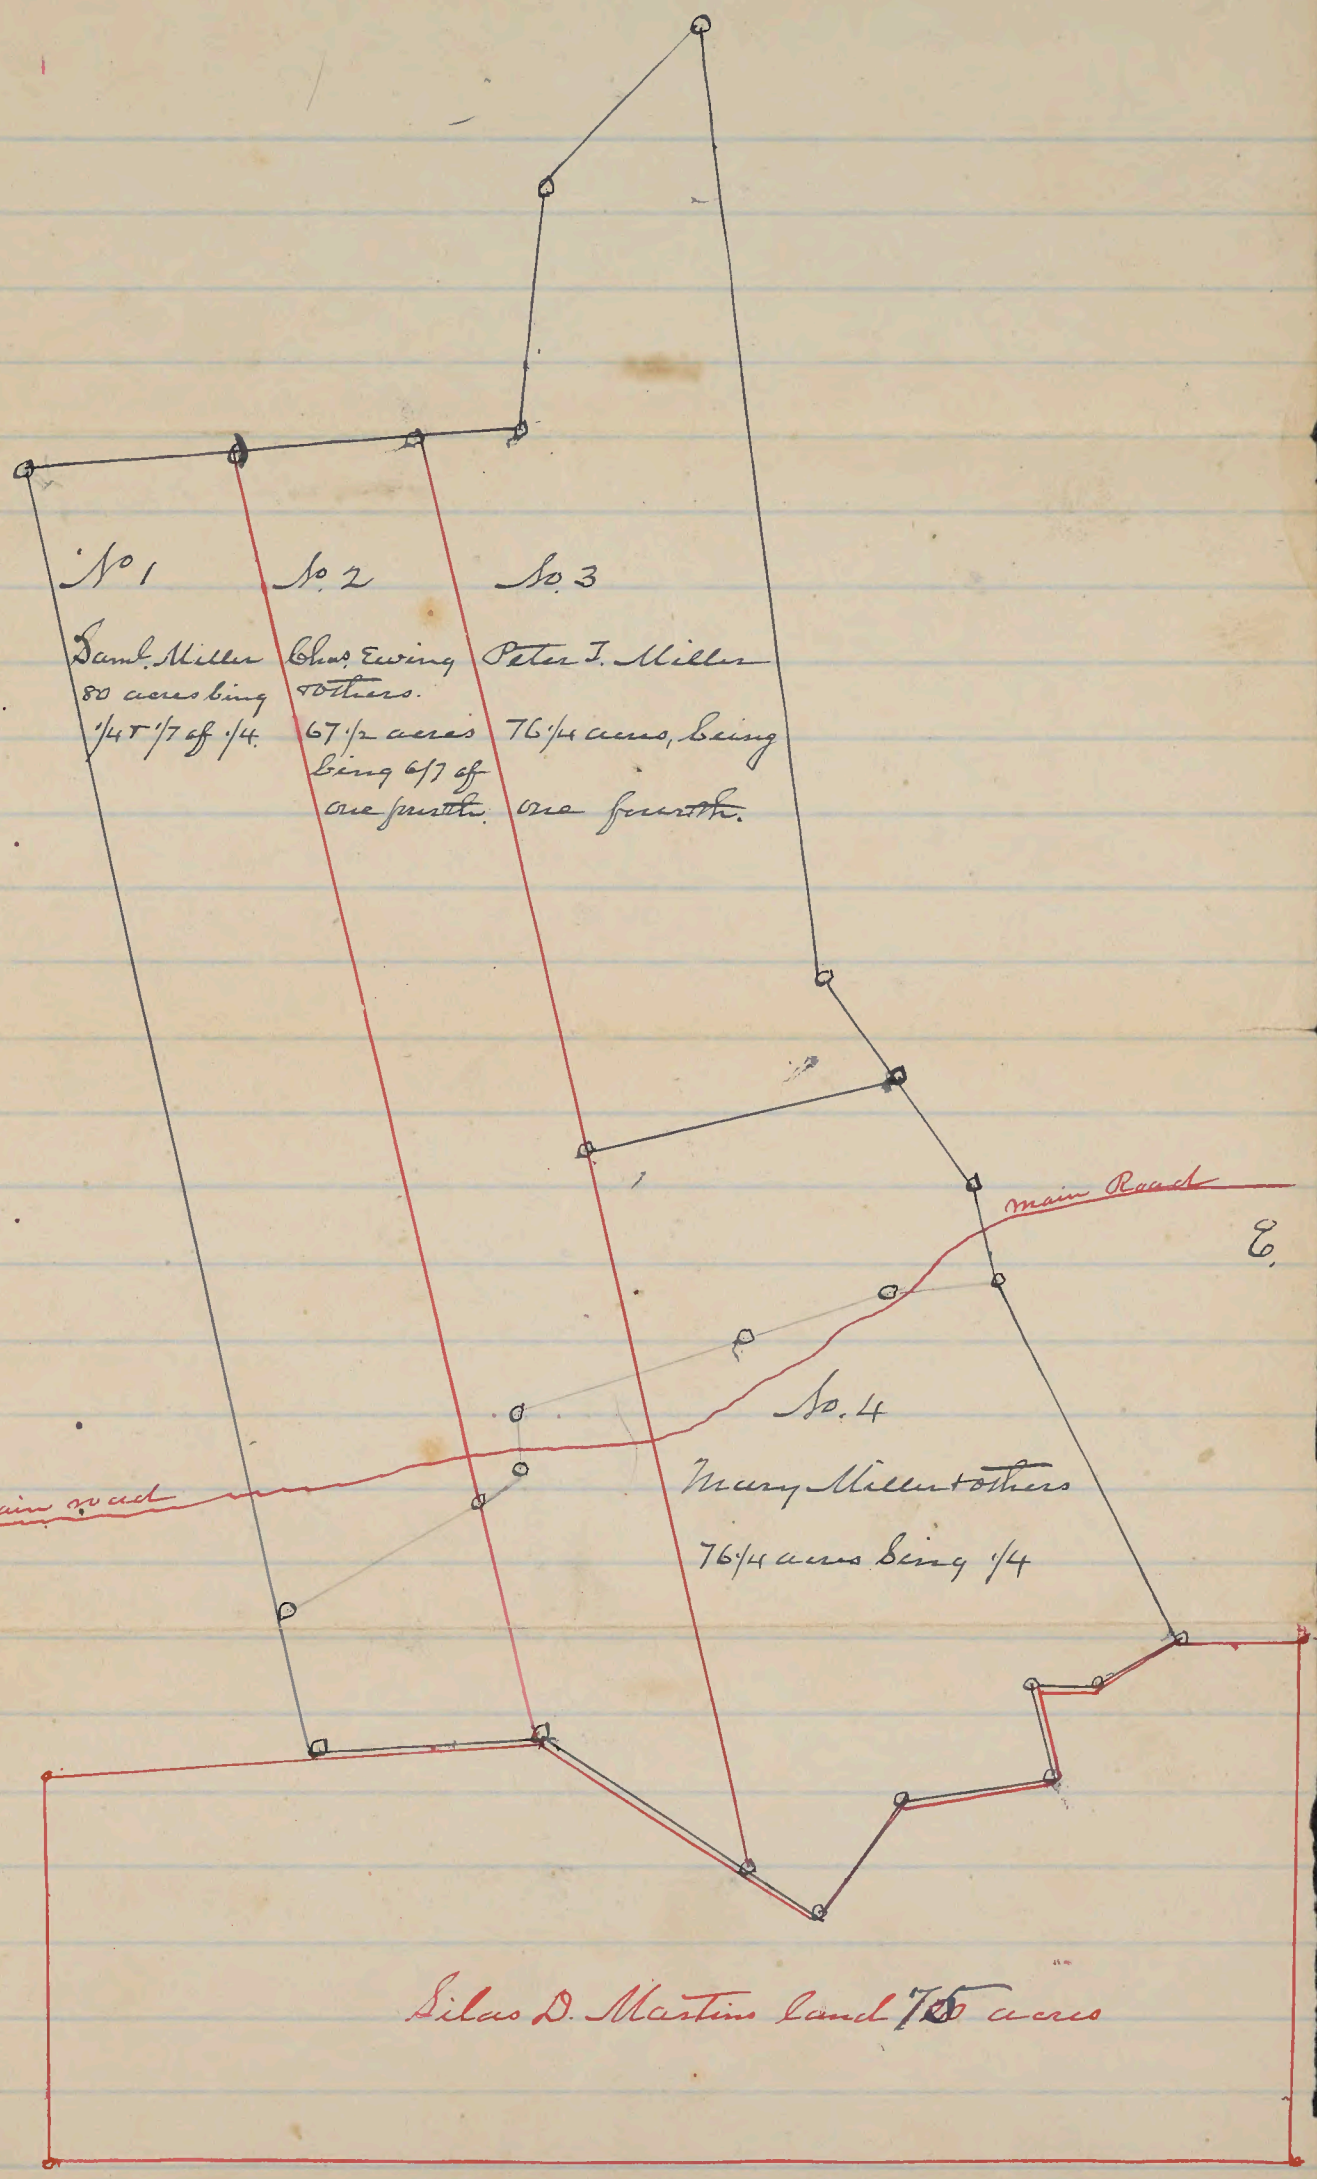 No 1
Saml. Miller
80 acres being
1/4 & 1/7 of 1/4.
No. 2
Chas. Ewing
& others.
67 1/2 acres
being 6/7 of
one fourth.
No. 3
Peter T. Miller
76 1/4 acres, being
one fourth.
main Road
E.
No. 4
Mary Miller & others
76 1/4 acres being 1/4
ain road
Silas D. Martins land 75 acres